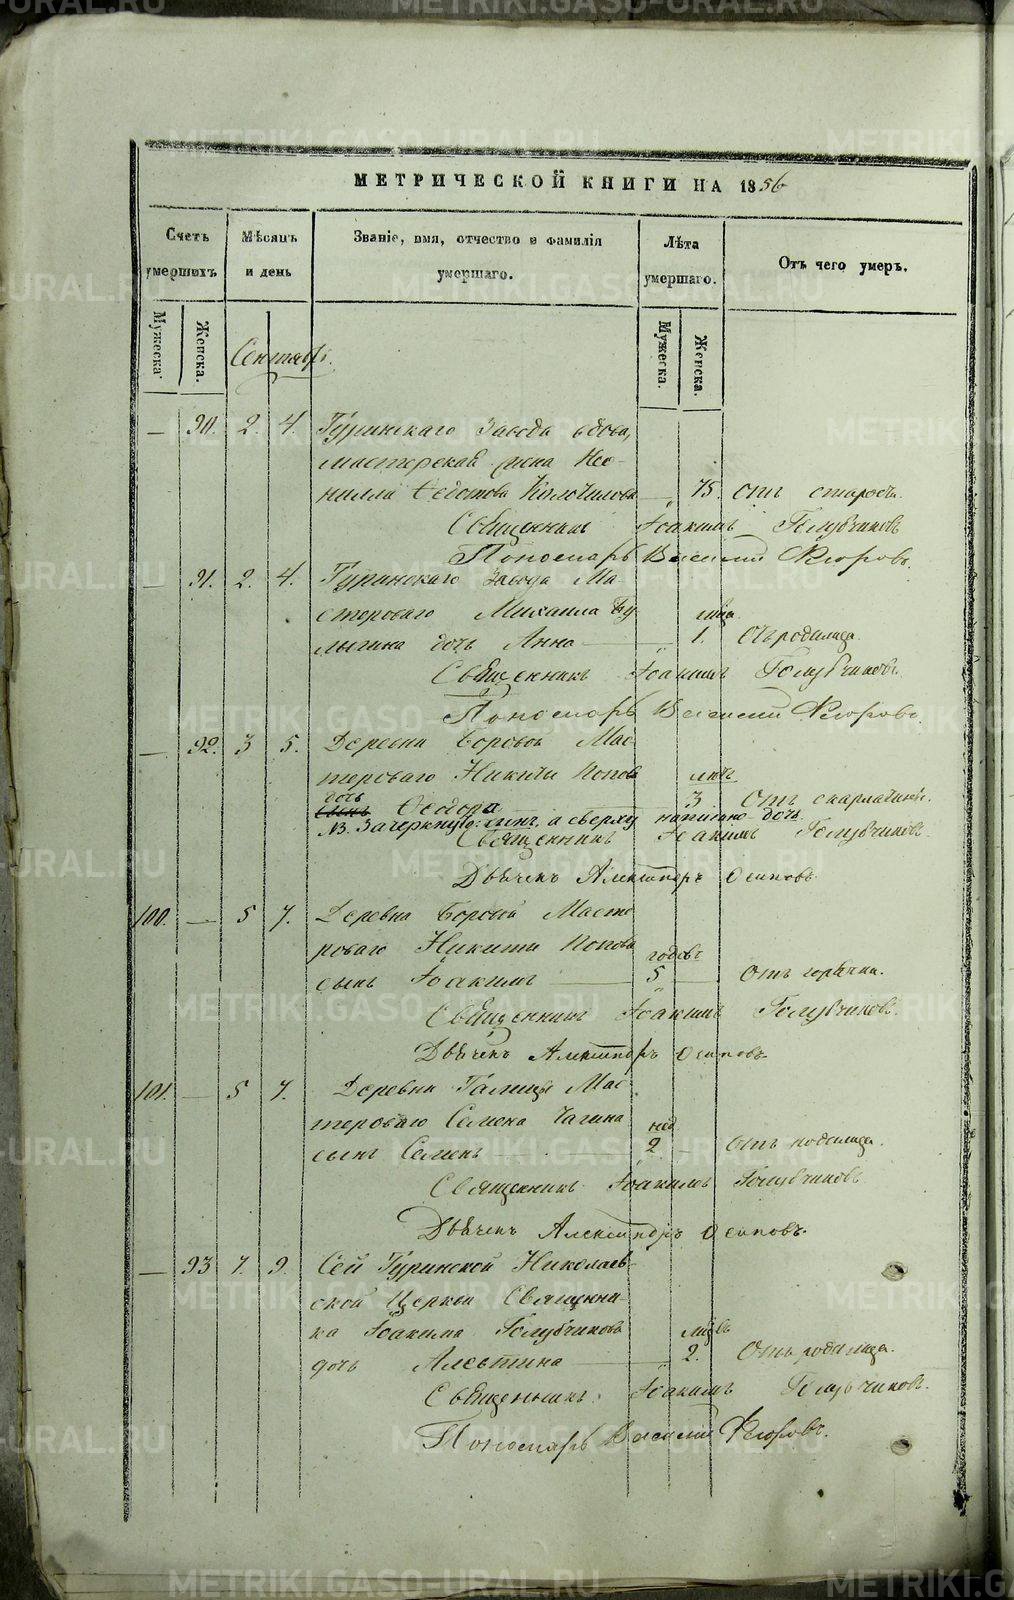 METRIKI.GASO-URAL.RU
МЕТРИЧЕСКОЙ КНИГИ НА 1856
Счетъ умершихъ
Мѣсяцъ и день
Званіе, имя, отчество и фамилія умершаго.
Лѣта умершаго.
Отъ чего умеръ.
Мужеска.
Женска.
Мужеска.
Женска.
Сентябрь.
— 90. 2. 4. Туринскаго Завода вдова,
мастерская жена Нео-
нилла 75. отъ старости.
Священникъ Іоакимъ Голубчиковъ
Пономарь Василій
— 91. 2. 4. Туринскаго Завода Ма-
стероваго Михаила Бу-
лыгина дочь Анна — 1. отъ родимца.
Священникъ Іоакимъ Голубчиковъ.
Пономарь Василій
— 92. 3 5. Деревни Боровой Мас-
тероваго Никиты Попова лѣтъ
дочь
сынъ Ѳеодора 3 Отъ скарлатины.
NB. Зачеркнуто: сынъ, а сверху написано дочь.
Священникъ Іоакимъ Голубчиковъ.
Дьячекъ Александръ Осиповъ.
100. — 5 7. Деревни Боровой Масте-
роваго Никиты Попова годовъ
сынъ Іоакимъ — 5 — Отъ горячки.
Священникъ Іоакимъ Голубчиковъ.
Дьячекъ Александръ Осиповъ.
101. — 5 7. Деревни Мас-
тероваго Семена Чагина нед.
сынъ Семенъ 2 — Отъ родимца.
Священникъ Іоакимъ Голубчиковъ
Дьячекъ Александръ Осиповъ.
— 93 7. 9. Сей Туринской Николаев-
ской Церкви Священни-
ка Іоакима Голубчикова
дочь Алевтина — 2. Отъ родимца.
Священникъ Іоакимъ Голубчиковъ.
Пономарь Василій